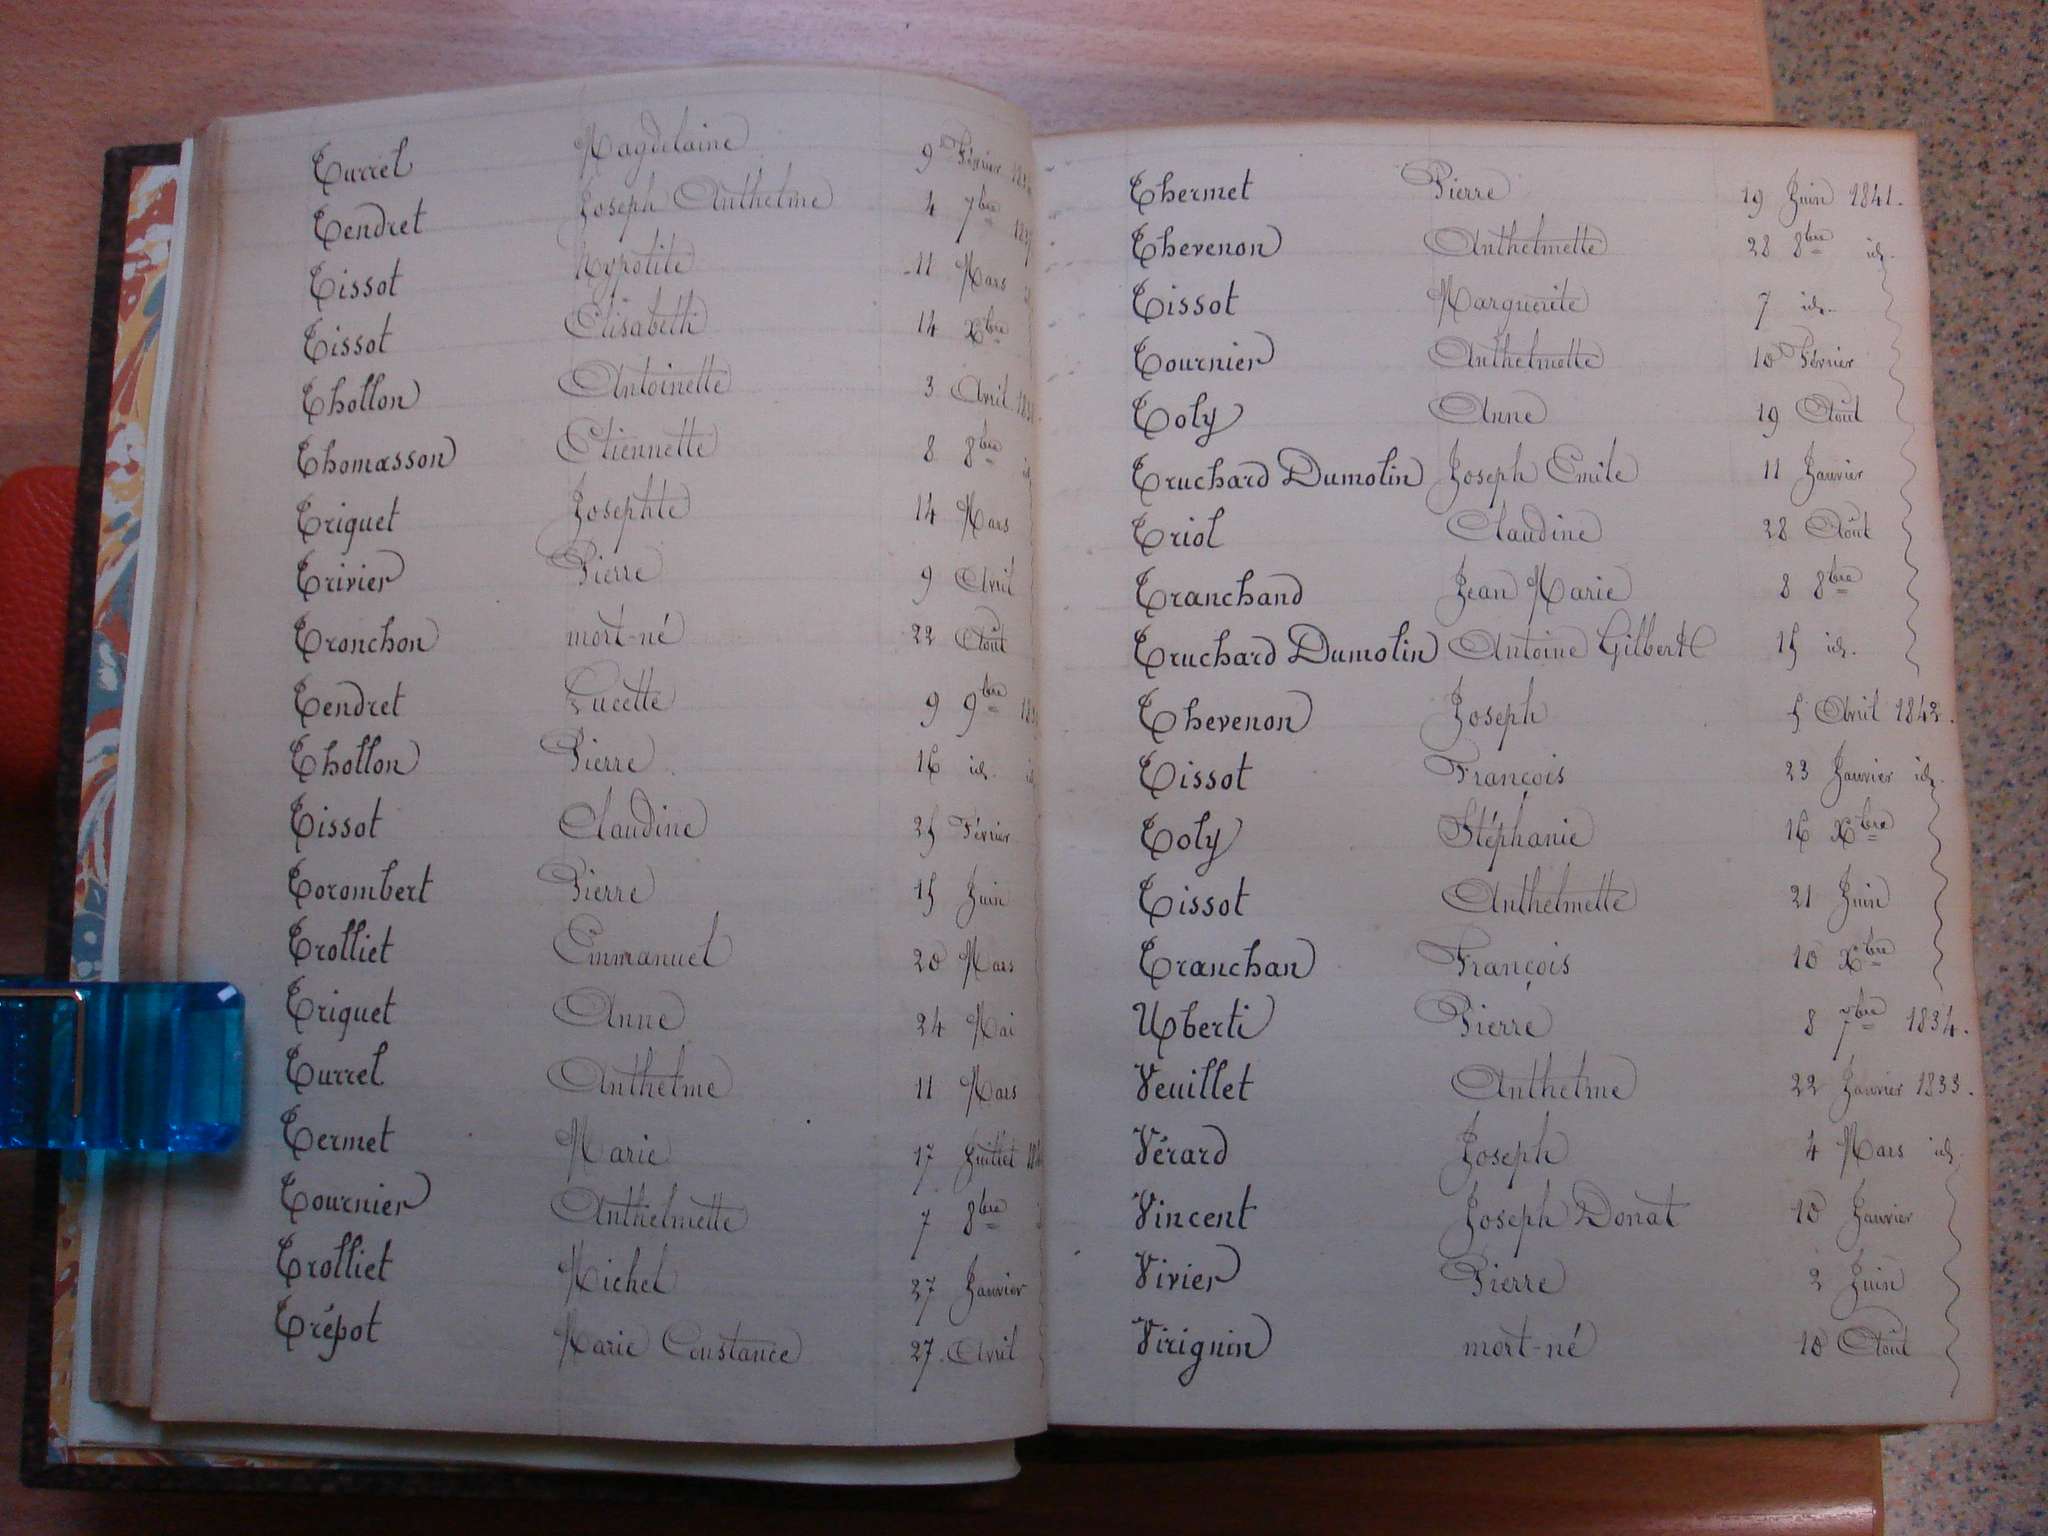 Turrel Magdelaine 9 Février
Tendret Joseph Anthelme 4 7bre
Tissot hypolite 11 Mars
Tissot Elisabeth 14 Xbre
Thollon Antoinette 3 Avril
Thomasson Etiennette 8 8bre
Triquet Josephte 14 Mars
Trivier Pierre 9 Avril
Tronchon mort-né 22 Août
Tendret Lucette 9 9bre
Thollon Pierre 16 id.
Tissot Claudine 25 Février
Torombert Pierre 15 Juin
Trolliet Emmanuel 20 Mars
Triquet Anne 24 Mai
Turrel Anthelme 11 Mars
Termet Marie 17 Juillet
Tournier Anthelmette 7 8bre
Trolliet Michel 27 Janvier
Trépot Marie Constance 27 Avril
Thermet Pierre 19 Juin 1841.
Thevenon Anthelmette 28 8bre id.
Tissot Marguerite 7 id.
Tournier Anthelmette 10 Février
Toly Anne 19 Août
Truchard Dumolin Joseph Emile 11 Janvier
Triol Claudine 28 Août
Tranchand Jean Marie 8 8bre
Truchard Dumolin Antoine Gilbert 15 id.
Thevenon Joseph 5 Avril 1842.
Tissot François 23 Janvier id.
Toly Stéphanie 16 Xbre
Tissot Anthelmette 21 Juin
Tranchan François 10 Xbre
Uberti Pierre 8 7bre 1834.
Veuillet Anthelme 22 Janvier 1833.
Vérard Joseph 4 Mars id.
Vincent Joseph Donat 10 Janvier
Vivier Pierre 2 Juin
Viriguin mort-né 10 Août